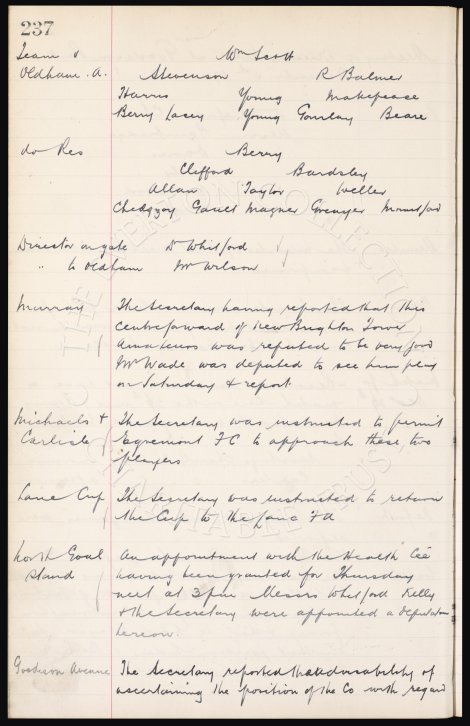 237
Team v Wm Scott
Oldham. A. Stevenson R Balmer
Harris Young Makepeace
Berry Lacey Young Gourlay Beare
do Res Berry
Clifford Bardsley
Allan Taylor Weller
Chedgzoy Gault Magner Greager Mountford
Director on gate D Whitford
" to Oldham Mr Wilson
Murray The Secretary having reported that this
centre forward of New Brighton Tower
Amateurs was reputed to be very good
Mr Wade was deputed to see him play
on Saturday & report
Michaels & The Secretary was instructed to permit
Carlisle Egremont FC to approach these two
players
Lanc Cup The Secretary was instructed to return
the Cup to the Lanc FA
North Goal An appointment with the Health Cee
Stand having been granted for Thursday
next at 3pm Messrs Whitford Kelly
& the Secretary were appointed a deputation
hereon.
Goodison Avenue The Secretary reported the advisability of
ascertaining the position of the Co with regard
THE EVERTON COLLECTION
CHARITABLE TRUST